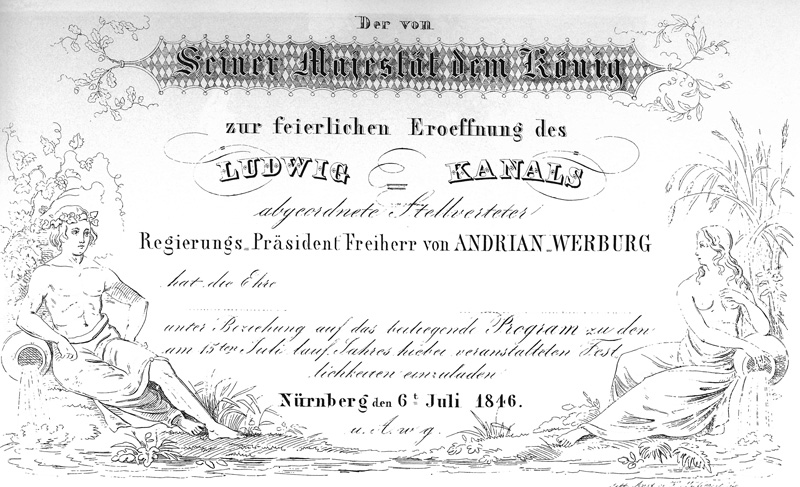 Der von
Seiner Majestät dem König
zur feierlichen Eroeffnung des
LUDWIG = KANALS
abgeordnete Stellverteter
Regierungs=Präsident Freiherr von ANDRIAN=WERBURG
hat die Ehre
unter Beziehung auf das beiliegende Program zu den
am 15ten Juli lauf. Jahres hiebei veranstalteten Fest
lichkeiten einzuladen
Nürnberg den 6t Juli 1846.
u. A. w. g.